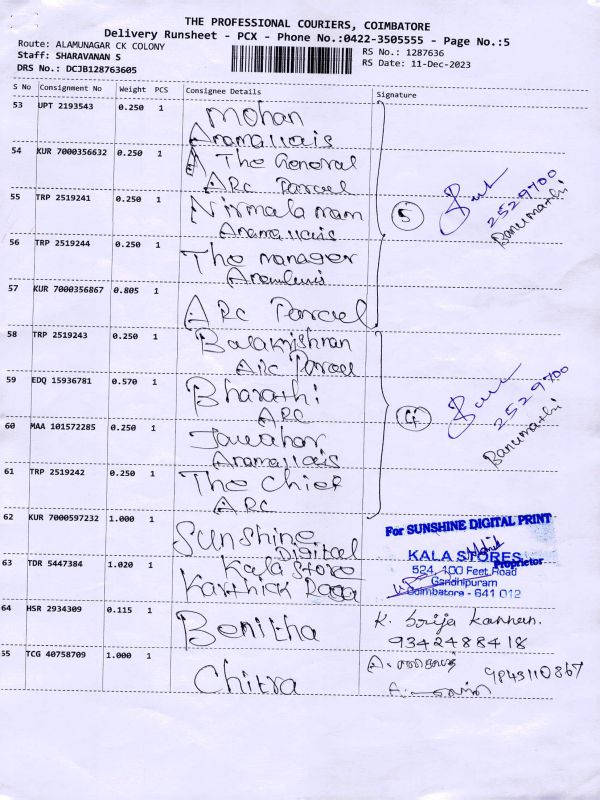 THE PROFESSIONAL COURIERS, COIMBATORE
Delivery Runsheet - PCX - Phone No.:0422-3505555 - Page No.:5
Route: ALAMUNAGAR CK COLONY
RS No.: 1287636
Staff: SHARAVANAN S
RS Date: 11-Dec-2023
DRS No.: DCJB128763605
S No Consignment No Weight PCS Consignee Details Signature
53 UPT 2193543 0.250 1 Mohan
Anamallais
54 KUR 7000356632 0.250 1 The General
ARC Parcel
55 TRP 2519241 0.250 1 Nirmala mam
Anamallais
5
2529700
Banumathi
56 TRP 2519244 0.250 1 The manager
57 KUR 7000356867 0.805 1
ARC Parcel
58 TRP 2519243 0.250 1 Balakrishnan
ARC Parcel
59 EDQ 15936781 0.570 1 Bharathi
ARC
4
2529700
Banumathi
60 MAA 101572285 0.250 1 Jawahar
Anamallais
61 TRP 2519242 0.250 1 The Chief
ARC
62 KUR 7000597232 1.000 1 Sunshine
Digital
For SUNSHINE DIGITAL PRINT
Proprietor
63 TDR 5447384 1.020 1 Kala Store
Karthick Raja
KALA STORES
524, 100 Feet Road
Gandhipuram
Coimbatore - 641 012
64 HSR 2934309 0.115 1 Benitha
K. Srija Kannan.
9342488418
55 TCG 40758709 1.000 1
Chitra
9843110867